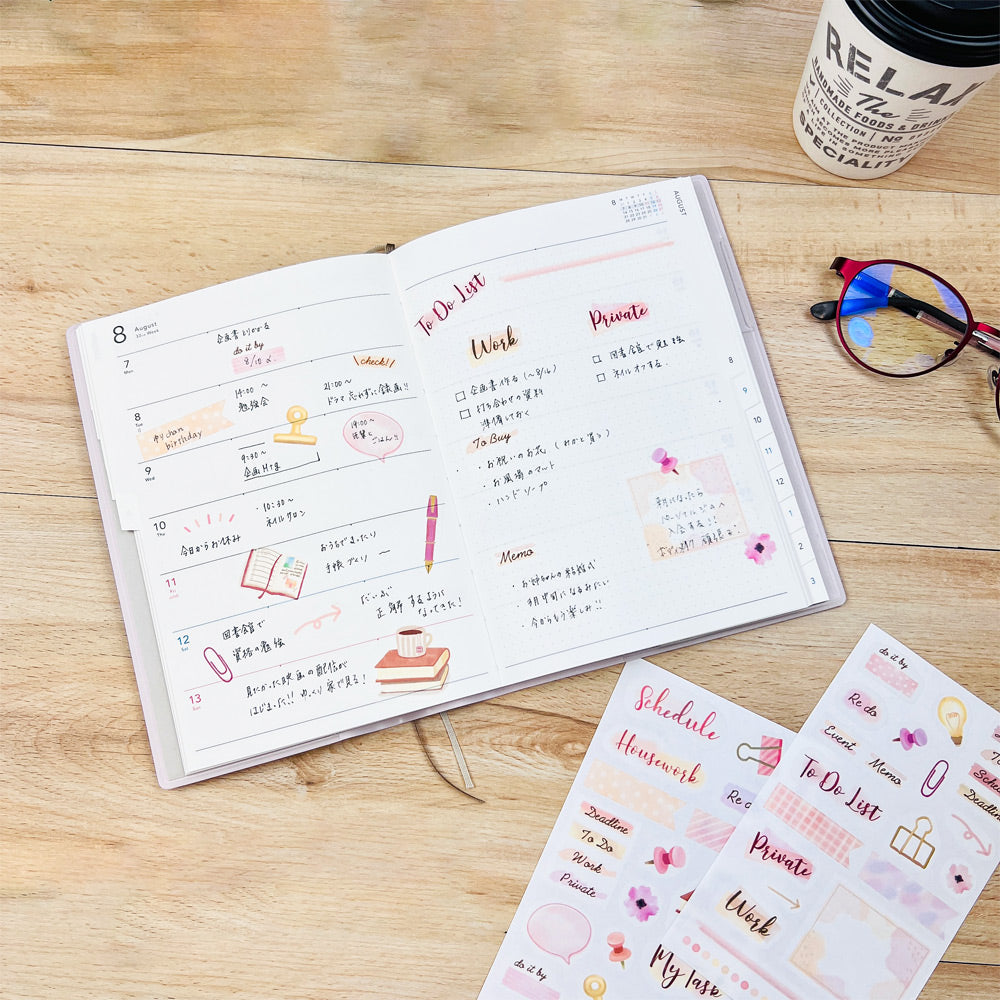 RELAX
HANDMADE FOODS & DRINKS
The
COLLECTION
No
SPECIALITY
8
August
7
Mon
企画書とりかかる
do it by
8/10 〆
check!!
8
Tue
14:00〜
勉強会
21:00〜
ドラマ忘れずに録画!!
ゆりchan
birthday
9
Wed
9:30〜
企画MTG
19:00〜
ごはん!!
10
Thu
10:30〜
ネイルサロン
今日からお休み
11
Fri
おうちでまったり
手帳づくり 〜
12
Sat
図書館で
資格の勉強
だいぶ
正解するように
なってきた!
13
Sun
見たかった映画の配信が
はじまった!! ゆっくり家で見る!
8
AUGUST
To Do List
Work
□ 企画書作る (〜8/16)
□ 打ち合わせの資料
準備しておく
Private
□ 図書館で勉強
□ ネイルオフする
To Buy
・お祝いのお花
・お風呂のマット
・ハンドソープ
Memo
・お姉ちゃんの結婚式
・今からもう楽しみ!!
パーソナルジムへ
入会する!!
8
9
10
11
12
1
2
3
Schedule
Housework
Deadline
To Do
Work
Private
do it by
do it by
Re do
Event
Memo
To Do List
Deadline
Private
Work
My Task